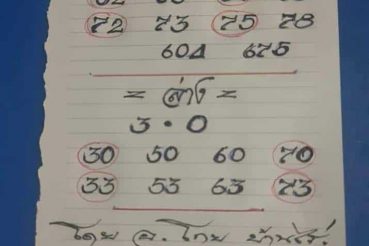 72 73 75 78
604 675
= ล่าง =
3 • 0
30 50 60 70
33 53 63 73
โดย อ. โทย บ้านไร่.